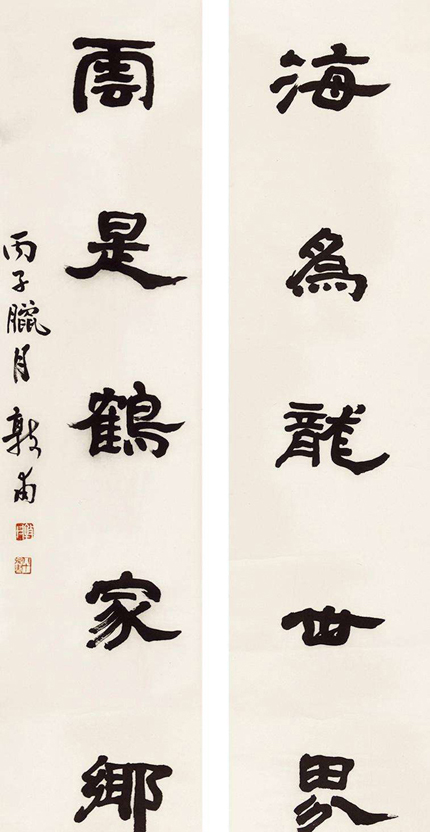 海為龍世界
雲是鶴家鄉
丙子臘月